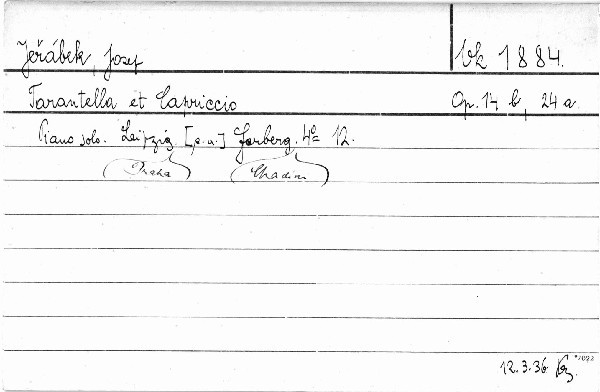 Jeřábek, Josef Vk 1884.
Tarantella et Capriccio Op. 14 b, 24 a.
Piano solo. Leipzig [s.a.] Forberg. 4° 12.
(Praha) (Chadim)
12.3.36